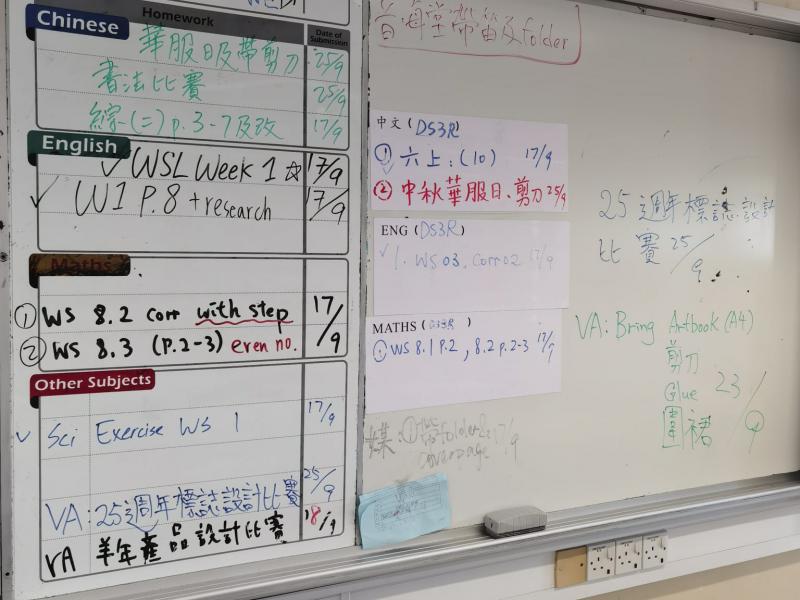 Homework
Date of Submission
Chinese
華服日及帶剪刀 25/9
書法比賽 25/9
綜(二) p.3-7及改 17/9
English
✓ WSL Week 1 ☆ 17/9
✓ W1 P.8 + research 17/9
Maths
① WS 8.2 corr with step 17/9
② WS 8.3 (P.2-3) even no.
Other Subjects
✓ Sci Exercise WS 1 17/9
VA: 25週年標誌設計比賽 25/9
VA 羊年產品設計比賽 18/9
音 堂帶笛及folder
中文 (DS3R)
① 六上:(10) 17/9
② 中秋華服日、剪刀 25/9
ENG (DS3R)
✓ 1. WS 03. Corr 02 17/9
MATHS (DS3R)
① WS 8.1 P.2, 8.2 p.2-3 17/9
①帶folder&
coverpage 17/9
25週年標誌設計
比賽 25/9
VA: Bring Artbook (A4)
剪刀
Glue 23/9
圍裙